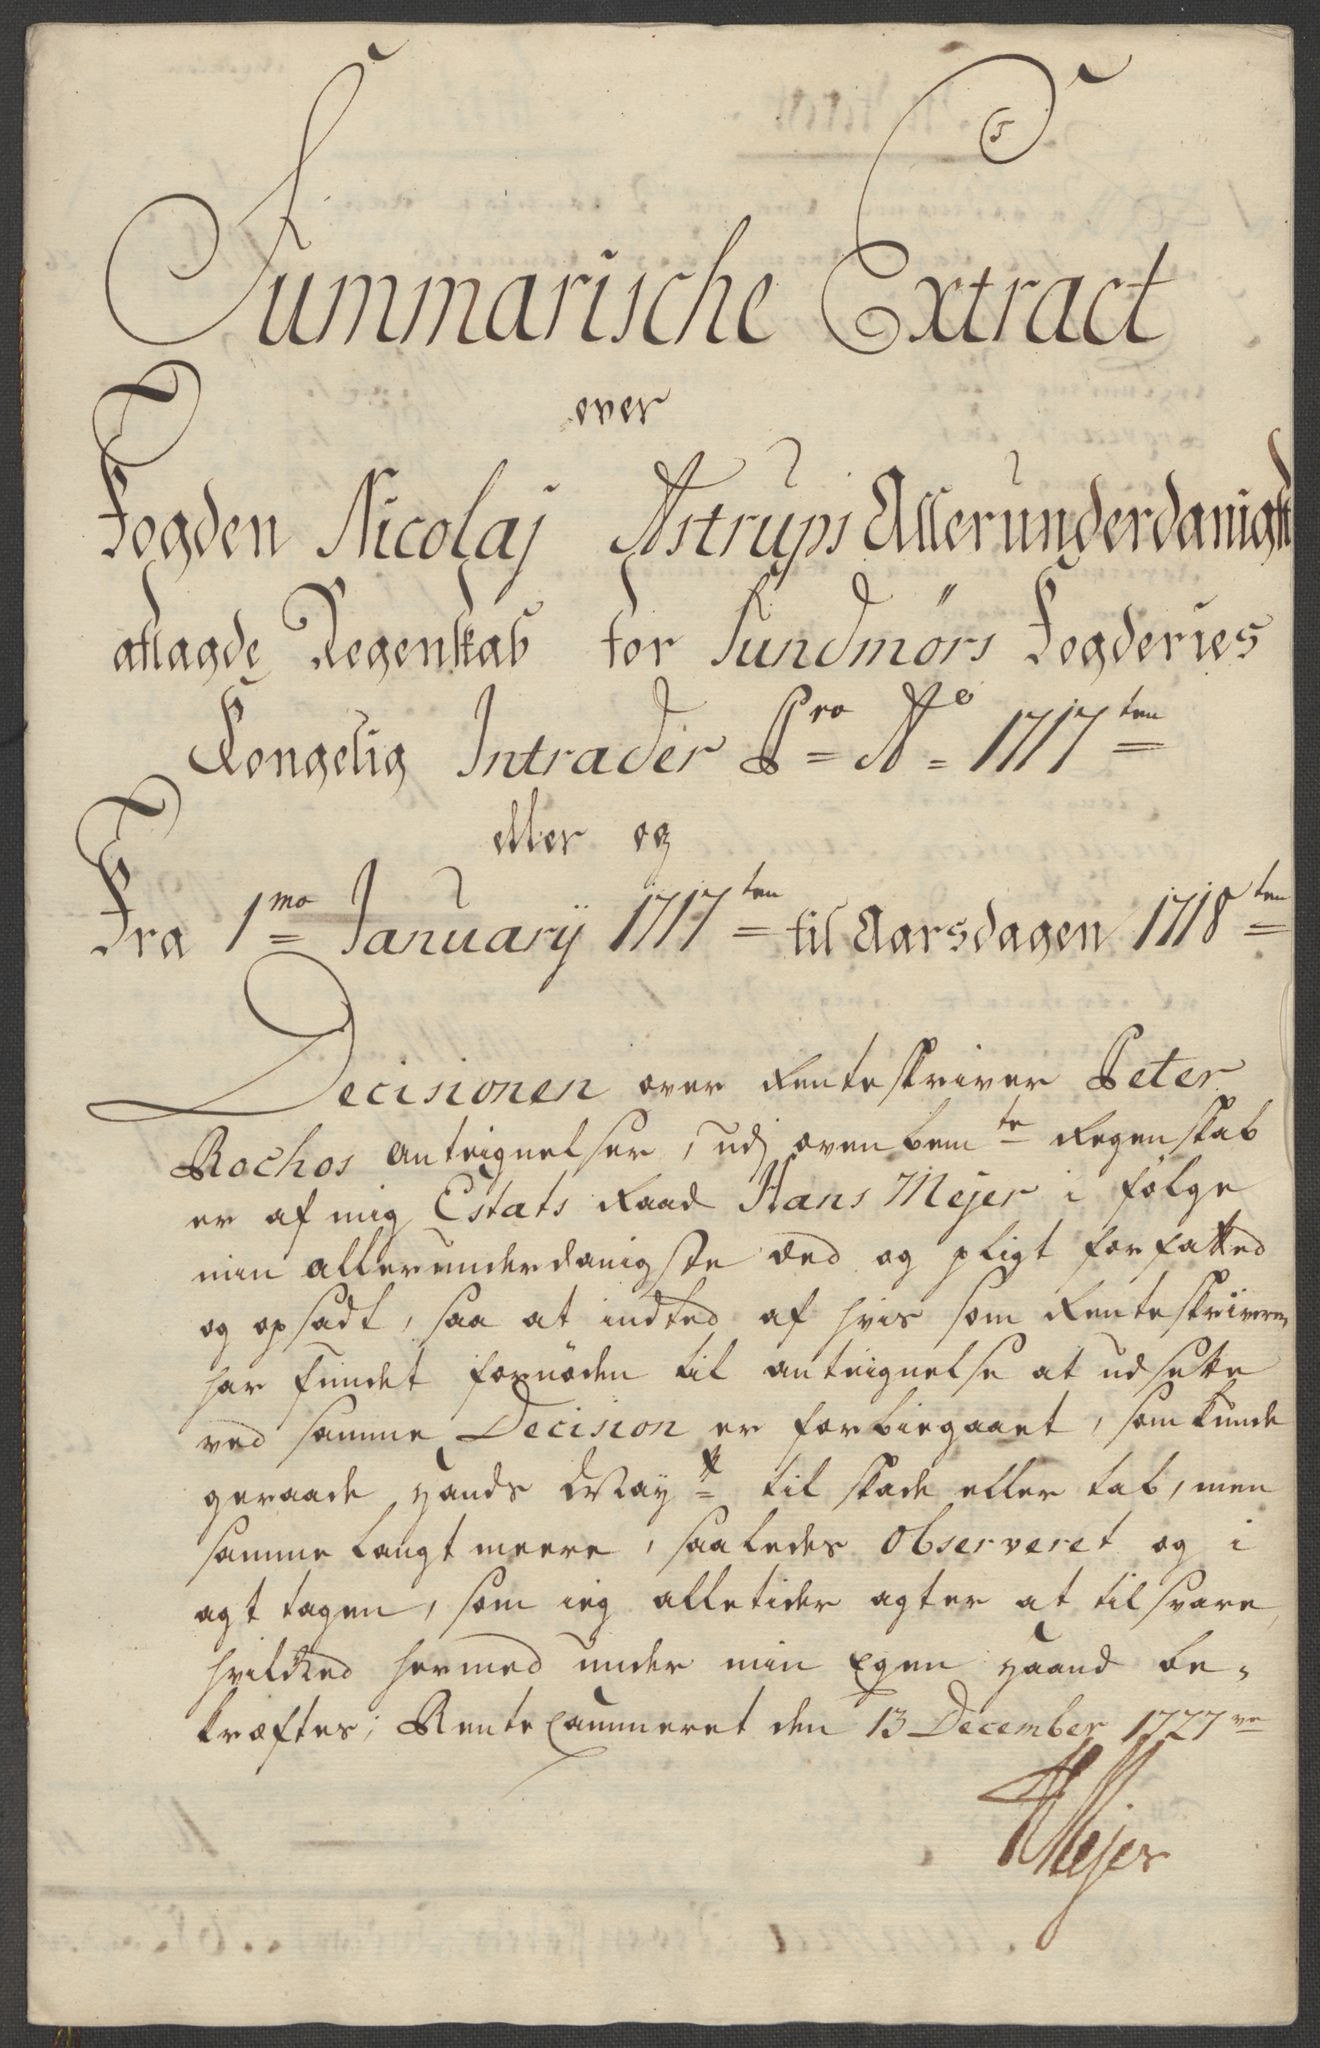 Summarische Extract
over
Fogden Nicolaj Astrups Allerunderdanigst
aflagde Regenskab for Sundmörs Fogderies
Kongelig Intrader Pro Ao 1717ten
eller og
Fra 1mo Januarij 1717ten til Aarsdagen 1718ten
Decisionen over Renteskriver Peter
Rochos Anteignelser, udj ovenbemte Regenskab
er af mig Estats Raad Hans Mejer i følge
min allerunderdanigste Eed og pligt forfatted
og opsadt, saa at indted af hvis som Renteskriveren
har fundet fornöden til anteignelse at udsette
ved samme Decision er forbiegaaet, som kunde
geraade hands May til skade eller tab, men
samme langt meere, saaledes Observeret og i
agt tagen, som ieg alletider agter at tilsvare,
hvilcked hermed under min Egen haand be-
kræftes; Rente Cammeret den 13 December 1727
HMejer